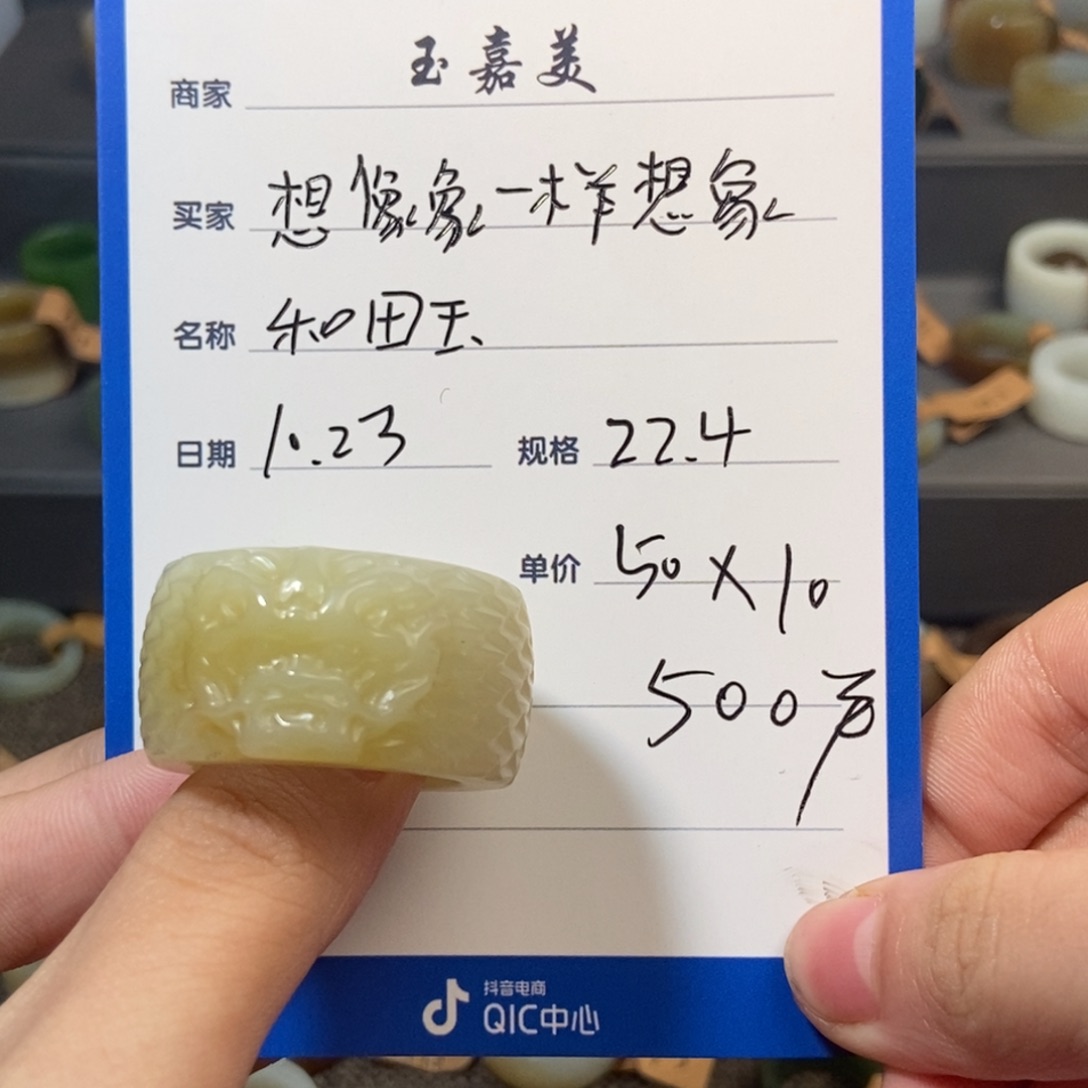 商家 玉嘉美
买家 想像象一样想象
名称 和田玉
日期 1.23 规格 22.4
单价 50×10
500
抖音电商
QIC中心